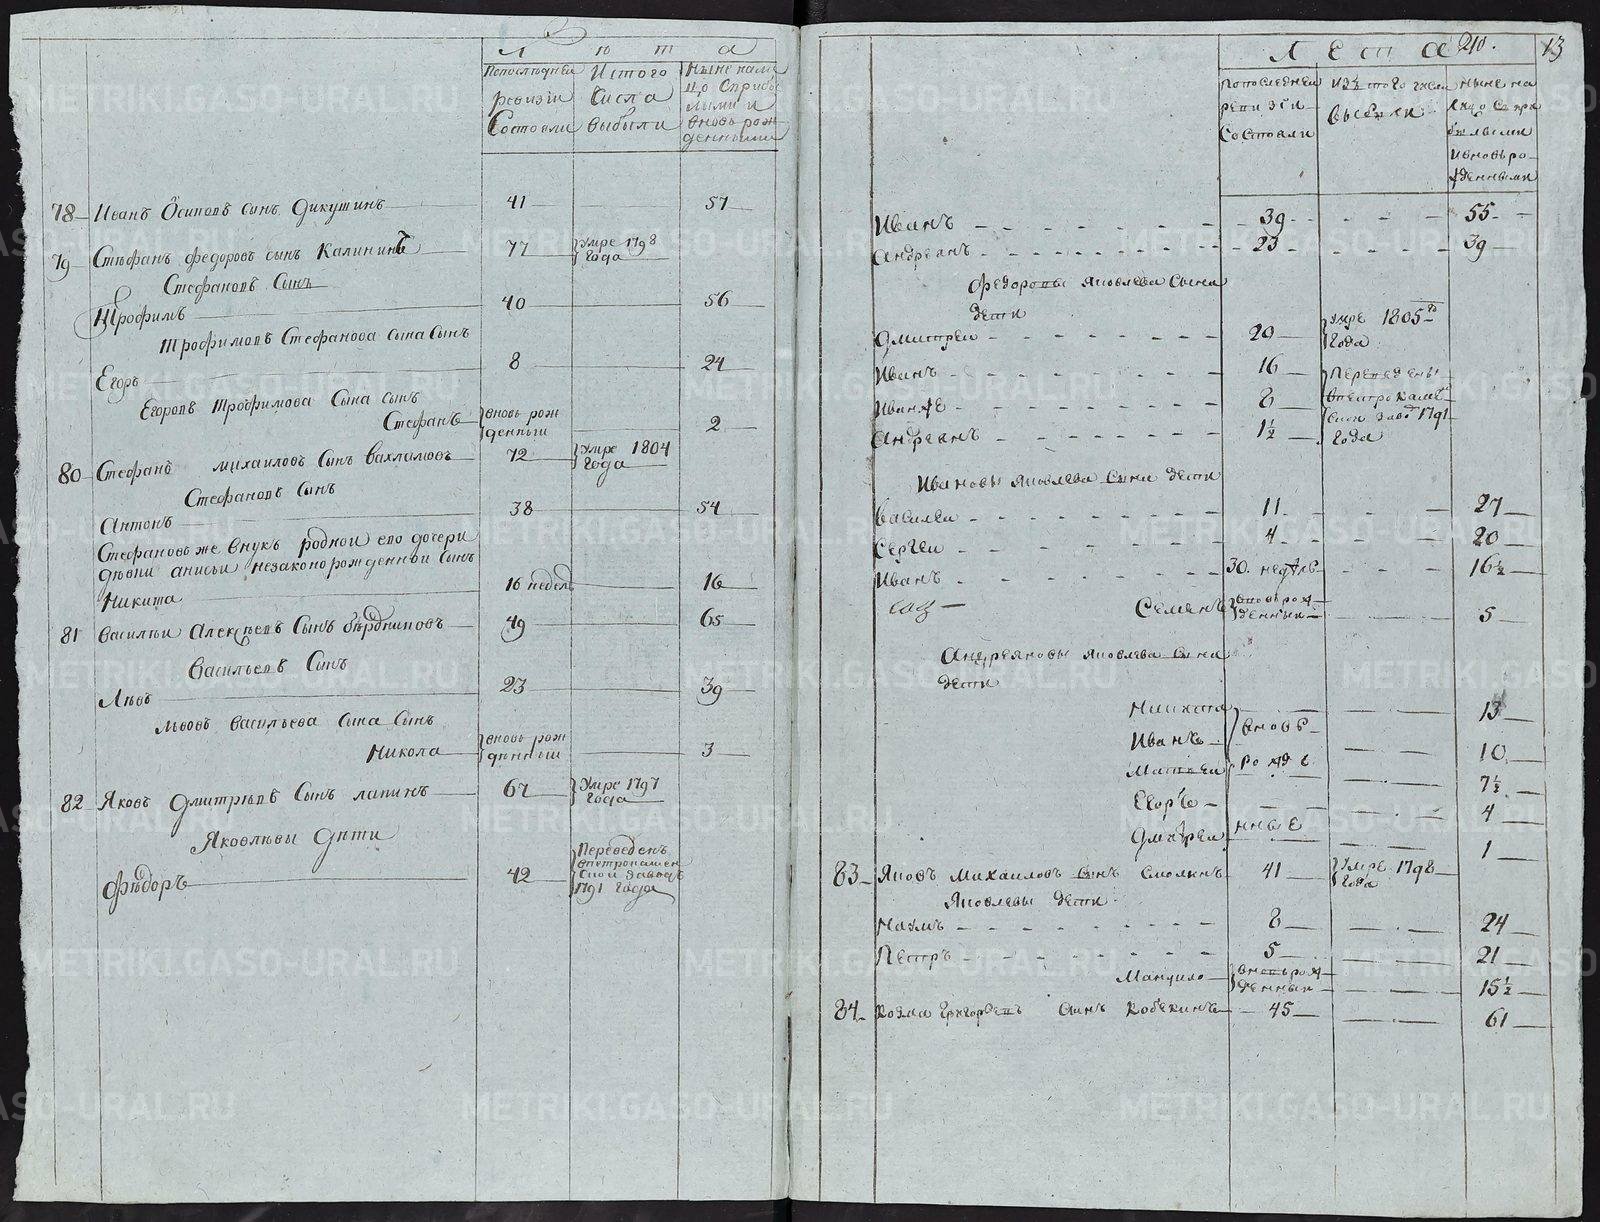 Лѣта
Попослѣдней ревизіи Состояли
Истого Числа выбыли
Ныне налицо Сприбылыми и вновь рожденными
78 Иванъ Осиповъ сынъ Дикушинъ 41 57
79 Стефанъ Федоровъ сынъ Калининъ 77 Умре 1798 Года
Стефановъ Сынъ
Трофимъ 40 56
Трофимовъ Стефанова сына Сынъ
Егоръ 8 24
Егоровъ Трофимова Сына сынъ
Стефанъ вновь рожденный 2
80 Стефанъ Михаиловъ Сынъ Вахламовъ 72 Умре 1804 Года
Стефановъ Сынъ
Антонъ 38 54
Стефановъ же внукъ родной его дочери
дѣвки анисьи незаконорожденной сынъ
Никита 16 недель 16
81 Василѣи Алексѣевъ Сынъ бѣрдниковъ 49 65
Васильевъ Сынъ
Лѣвъ 23 39
Львовъ Васильева Сына Сынъ
Никола вновь рожденный 3
82 Яковъ Дмитрѣвъ Сынъ лапинъ 67 Умре 1797 Года
Яковлѣвы Дѣти
Фѣдоръ 42 Переведенъ впетрокаменской заводъ 1791 года
Лета 210. 13
Попоследнеи ревизіи Состояли
Изъ того числа выбыли
Ныне налицо Сприбылыми ивновьрожденными
Иванъ 39 55
Андреанъ 23 39
Федоровы Яковлева Сына
дети
Дмитреи 20 умре 1805го Года
Иванъ 16 Переведены
Иванже 8 впетрокаменской завод 1791
Андреанъ 1½ Года
Ивановы Яковлева Сына дети
Василеи 11 27
Сергеи 4 20
Иванъ 30. недѣль 16½
Семенъ вновьрожденный 5
Андреяновы Яковлева Сына
дети
Никита 13
Иванъ вновь 10
Матвеи рожде 7½
Егоръ 4
Дмитреи нные 1
83 Яковъ Михаиловъ Сынъ Смолинъ 41 Умре 1798 Года
Яковлевы дети
Наумъ 8 24
Петръ 5 21
Мануило вновьрожденный 15½
84 Козма Григорьевъ Сынъ Кобекинъ 45 61
METRIKI.GASO-URAL.RU